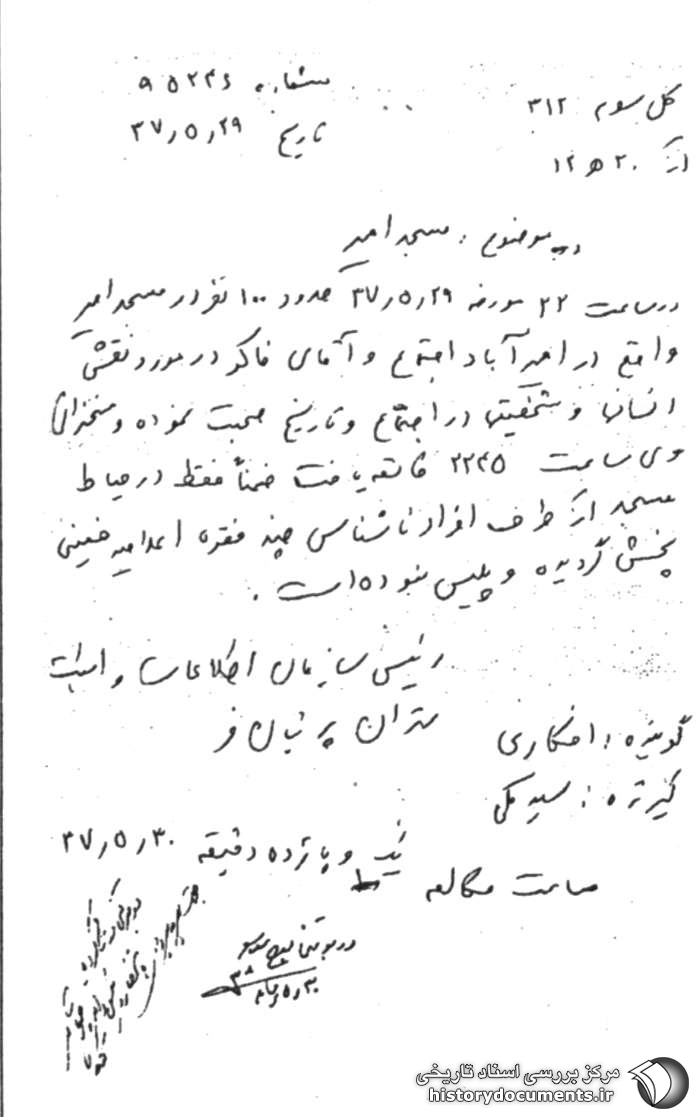 کل سوم ۳۱۲
شماره ۹۵۲۴۶
تاریخ ۳۷٫۵٫۲۹
از ۲۰ ه ۱۲
موضوع : مسجد امیر
در ساعت ۲۲ مورخه ۳۷٫۵٫۲۹ حدود ۱۰۰ نفر در مسجد امیر
واقع در امیرآباد اجتماع و آقای فاکر در مورد نقش
انسانها و شخصیتها در اجتماع و تاریخ صحبت نموده و سخنرانی
وی ساعت ۲۲۴۵ خاتمه یافت ضمناً فقط در حیاط
مسجد از طرف افراد ناشناسی چند فقره اعلامیه خمینی
پخش گردیده و پلیس نبوده است .
رئیس سازمان اطلاعات و امنیت
تهران پرنیان فر
گوینده : افکاری
گیرنده : سید مکی
ساعت مکالمه یک و پانزده دقیقه ۳۷٫۵٫۳۰
مرکز بررسی اسناد تاریخی
historydocuments.ir